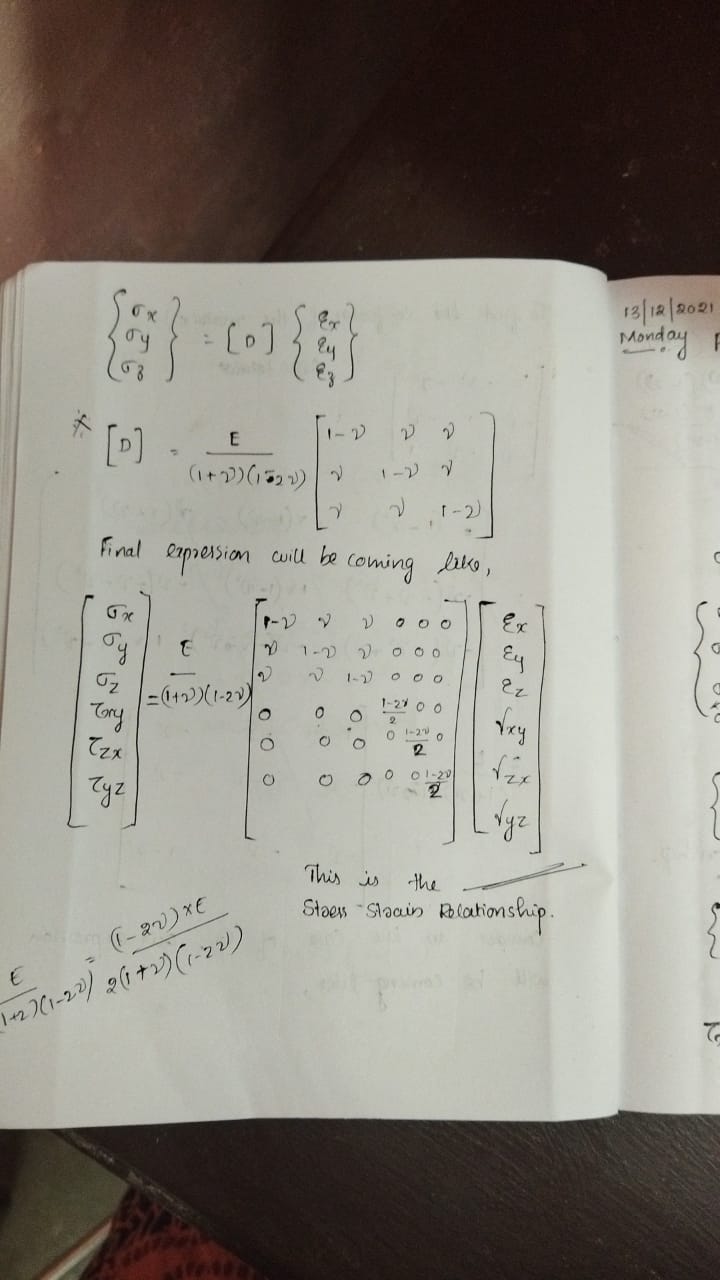 {σx σy σz} = [D] {εx εy εz}
* [D] = E / (1+ν)(1-2ν) [1-ν ν ν
ν 1-ν ν
ν ν 1-ν]
Final expression will be coming like,
[σx σy σz τxy τzx τyz] = E / (1+ν)(1-2ν) [1-ν ν ν 0 0 0
ν 1-ν ν 0 0 0
ν ν 1-ν 0 0 0
0 0 0 1-2ν/2 0 0
0 0 0 0 1-2ν/2 0
0 0 0 0 0 1-2ν/2] [εx εy εz γxy γzx γyz]
This is the
Stress-Strain Relationship.
E / (1+ν)(1-2ν) = (1-2ν)×E / 2(1+ν)(1-2ν)
13/12/2021
Monday